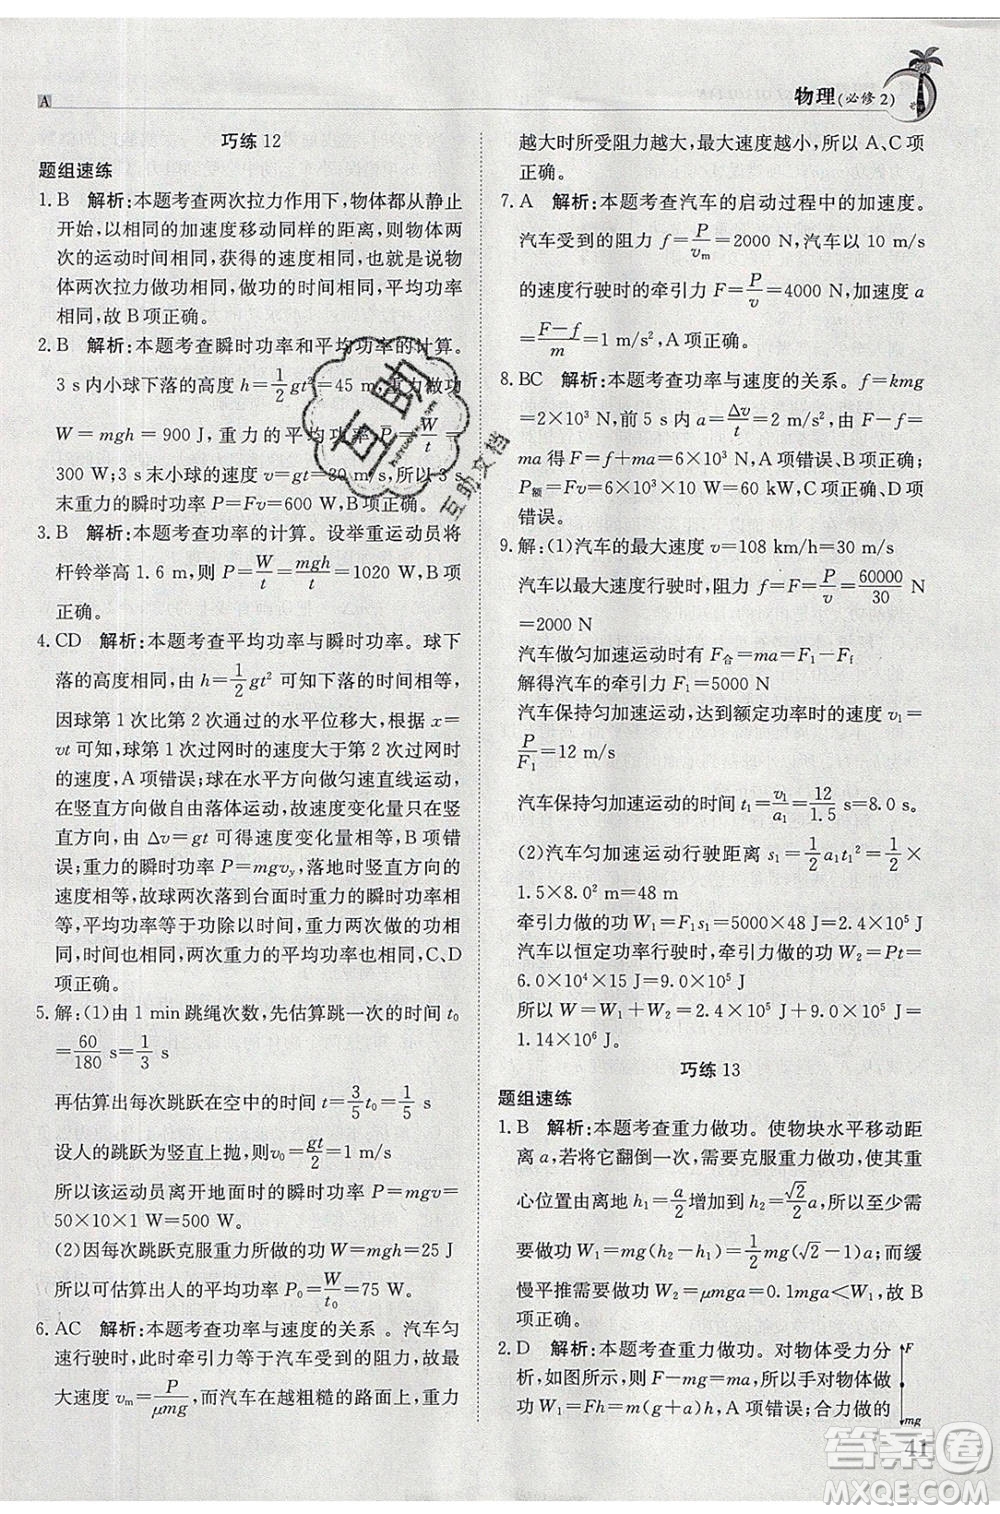 A
物理(必修2)
巧练 12
题组速练
1. B 解析:本题考查两次拉力作用下,物体都从静止
开始,以相同的加速度移动同样的距离,则物体两
次的运动时间相同,获得的速度相同,也就是说物
体两次拉力做功相同,所用时间相同,平均功率也
相同,故 B 项正确。
2. B 解析:本题考查瞬时功率和平均功率的计算。
3 s 内小球下落的高度 h=1/2 gt²=45 m,重力做功
W=mgh=900 J,重力的平均功率 P=W/t=
300 W;3 s 末小球的速度 v=gt=30 m/s,所以 3 s
末重力的瞬时功率 P=Fv=600 W,B 项正确。
3. B 解析:本题考查功率的计算。设举重运动员将
杆铃举高 1.6 m,则 P=W/t=mgh/t=1020 W,B 项
正确。
4. CD 解析:本题考查平均功率与瞬时功率。球下
落的高度相同,由 h=1/2 gt² 可知下落的时间相同,
因球第 1 次比第 2 次通过的水平位移大,根据 x=
vt 可知,球第 1 次过网时的速度大于第 2 次过网时
的速度,A 项错误;球在水平方向做匀速直线运动,
在竖直方向做自由落体运动,故速度变化量只在竖
直方向,由 Δv=gt 可得速度变化量相等,B 项错
误;重力的瞬时功率 P=mgvy,落地时竖直方向的
速度相等,故球两次落到台面时重力的瞬时功率相
等,平均功率等于功除以时间,重力两次做的功相
同,时间也相同,两次重力的平均功率相同,C、D
项正确。
5. 解:(1)由 1 min 跳绳次数,先估算跳一次的时间 t₀
=60/180 s=1/3 s
再估算出每次跳跃在空中的时间 t=3/5 t₀=1/5 s
设人的跳跃为竖直上抛,则 v₀=gt/2=1 m/s
所以该运动员离开地面时的瞬时功率 P=mgv=
50×10×1 W=500 W
(2)因每次跳跃克服重力所做的功 W=mgh=25 J
所以可估算出人的平均功率 P₀=W/t₀=75 W。
6. AC 解析:本题考查功率与速度的关系 。汽车匀
速行驶时,此时牵引力等于汽车受到的阻力,故最
大速度 vm=P/μmg,而汽车在越粗糙的路面上,重力
越大时所受阻力越大,最大速度越小,所以 A、C 项
正确。
7. A 解析:本题考查汽车的启动过程中的加速度。
汽车受到的阻力 f=P/vm=2000 N,汽车以 10 m/s
的速度行驶时的牵引力 F=P/v=4000 N,加速度 a
=(F−f)/m=1 m/s²,A 项正确。
8. BC 解析:本题考查功率与速度的关系。f=kmg
=2×10³ N,前 5 s 内 a=Δv/t=2 m/s²,由 F−f=
ma 得 F=f+ma=6×10³ N,A 项错误、B 项正确;
P额=Fv=6×10³×10 W=60 kW,C 项正确、D 项
错误。
9. 解:(1)汽车的最大速度 v=108 km/h=30 m/s
汽车以最大速度行驶时,阻力 f=F=P/v=60000/30 N
=2000 N
汽车做匀加速运动时有 F合=ma=F₁−Ff
解得汽车的牵引力 F₁=5000 N
汽车保持匀加速运动,达到额定功率时的速度 v₁=
P/F₁=12 m/s
汽车保持匀加速运动的时间 t₁=v₁/a₁=12/1.5 s=8.0 s。
(2)汽车匀加速运动行驶距离 s₁=1/2 a₁t₁²=1/2×
1.5×8.0² m=48 m
牵引力做的功 W₁=F₁s₁=5000×48 J=2.4×10⁵ J
汽车以恒定功率行驶时,牵引力做的功 W₂=Pt=
6.0×10⁴×15 J=9.0×10⁵ J
所以 W=W₁+W₂=2.4×10⁵ J+9.0×10⁵ J=
1.14×10⁶ J。
巧练 13
题组速练
1. B 解析:本题考查重力做功。使物块水平移动距
离 a,若将它翻倒一次,需要克服重力做功,使其重
心位置由离地 h₁=a/2 增加到 h₂=√2/2 a,所以至少需
要做功 W₁=mg(h₂−h₁)=1/2 mg(√2−1)a;而缓
慢平推需要做功 W₂=μmga=0.1mga<W₁,故 B
项正确。
2. D 解析:本题考查重力做功。对物体受力分
析,如图所示,F−mg=ma,所以手对物体做
功 W₁=Fh=m(a+g)h,A 项错误;合力做的
F
mg
41
互助
互助文档
答案圈
MXQE.COM